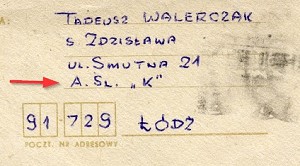 A:
TADEUSZ WALERCZAK
S ZDZISŁAWA
UL. SMUTNA 21
A. ŚL. „K”
91-729 ŁÓDŹ
POCZT. NR ADRESOWY